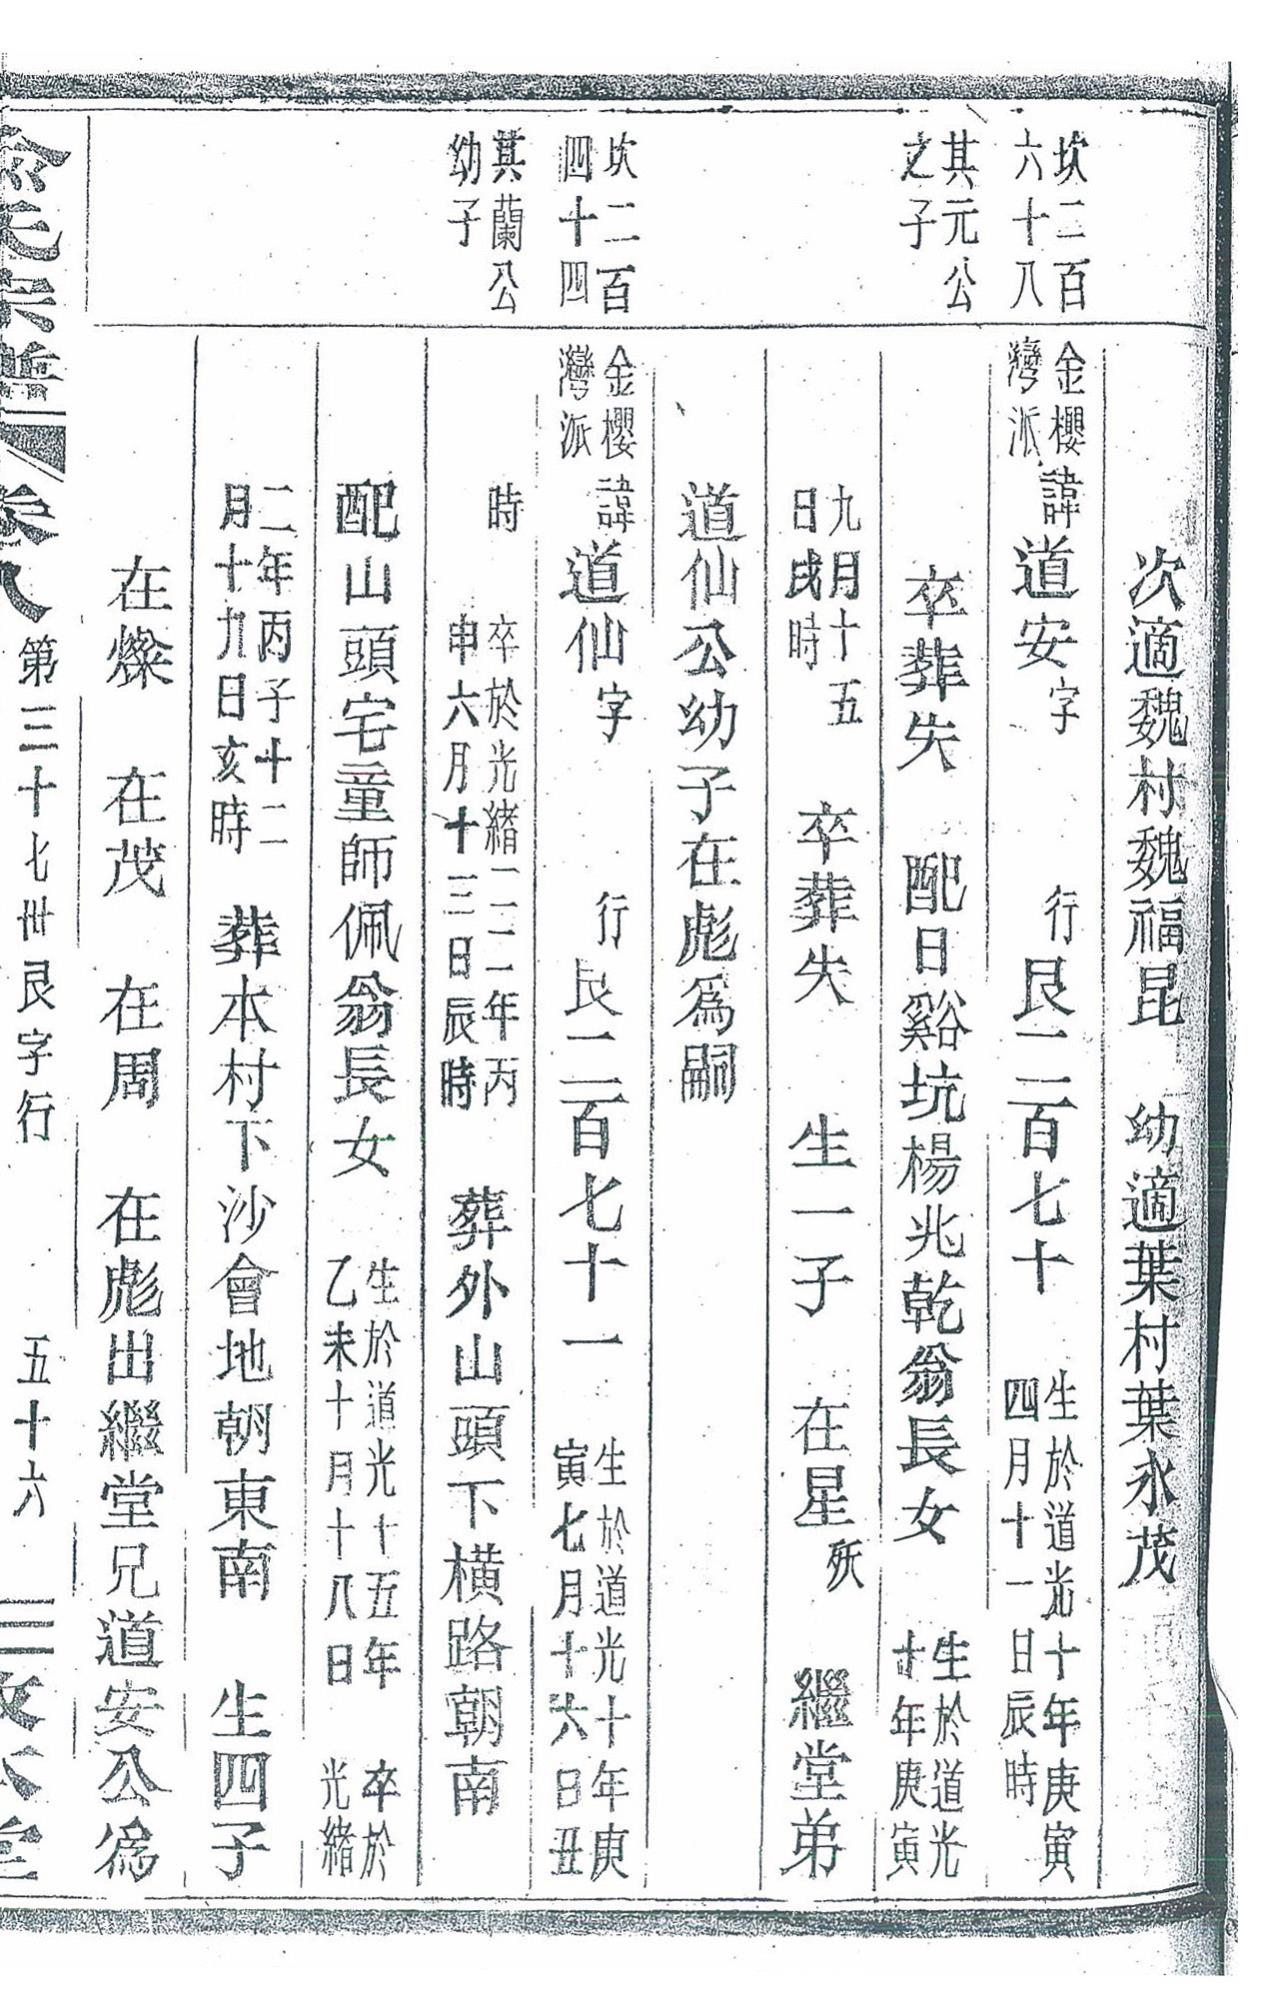 次適魏村魏福昆　幼適葉村葉永茂
坎二百六十八　金櫻灣派　諱道安字　行艮三百七十　生於道光十年庚寅四月十一日辰時
其元公之子　卒葬失　配日谿坑楊兆乾翁長女　生於道光十年庚寅
九月十五日戌時　卒葬失　生一子　在星殀　繼堂弟
道仙公幼子在彪爲嗣
坎二百四十四　金櫻灣派　諱道仙字　行艮三百七十一　生於道光十年庚寅七月十六日丑
其蘭公幼子　時　卒於光緒二二年丙申六月十三日辰時　葬外山頭下橫路朝南
配山頭宅童師佩翁長女　生於道光十五年乙未十月十八日　卒於光緒
二年丙子十二月十九日亥時　葬本村下沙會地朝東南　生四子
在燦　在茂　在周　在彪出繼堂兄道安公爲
氏宗譜　卷八　第三十七世艮字行　五十六　本堂